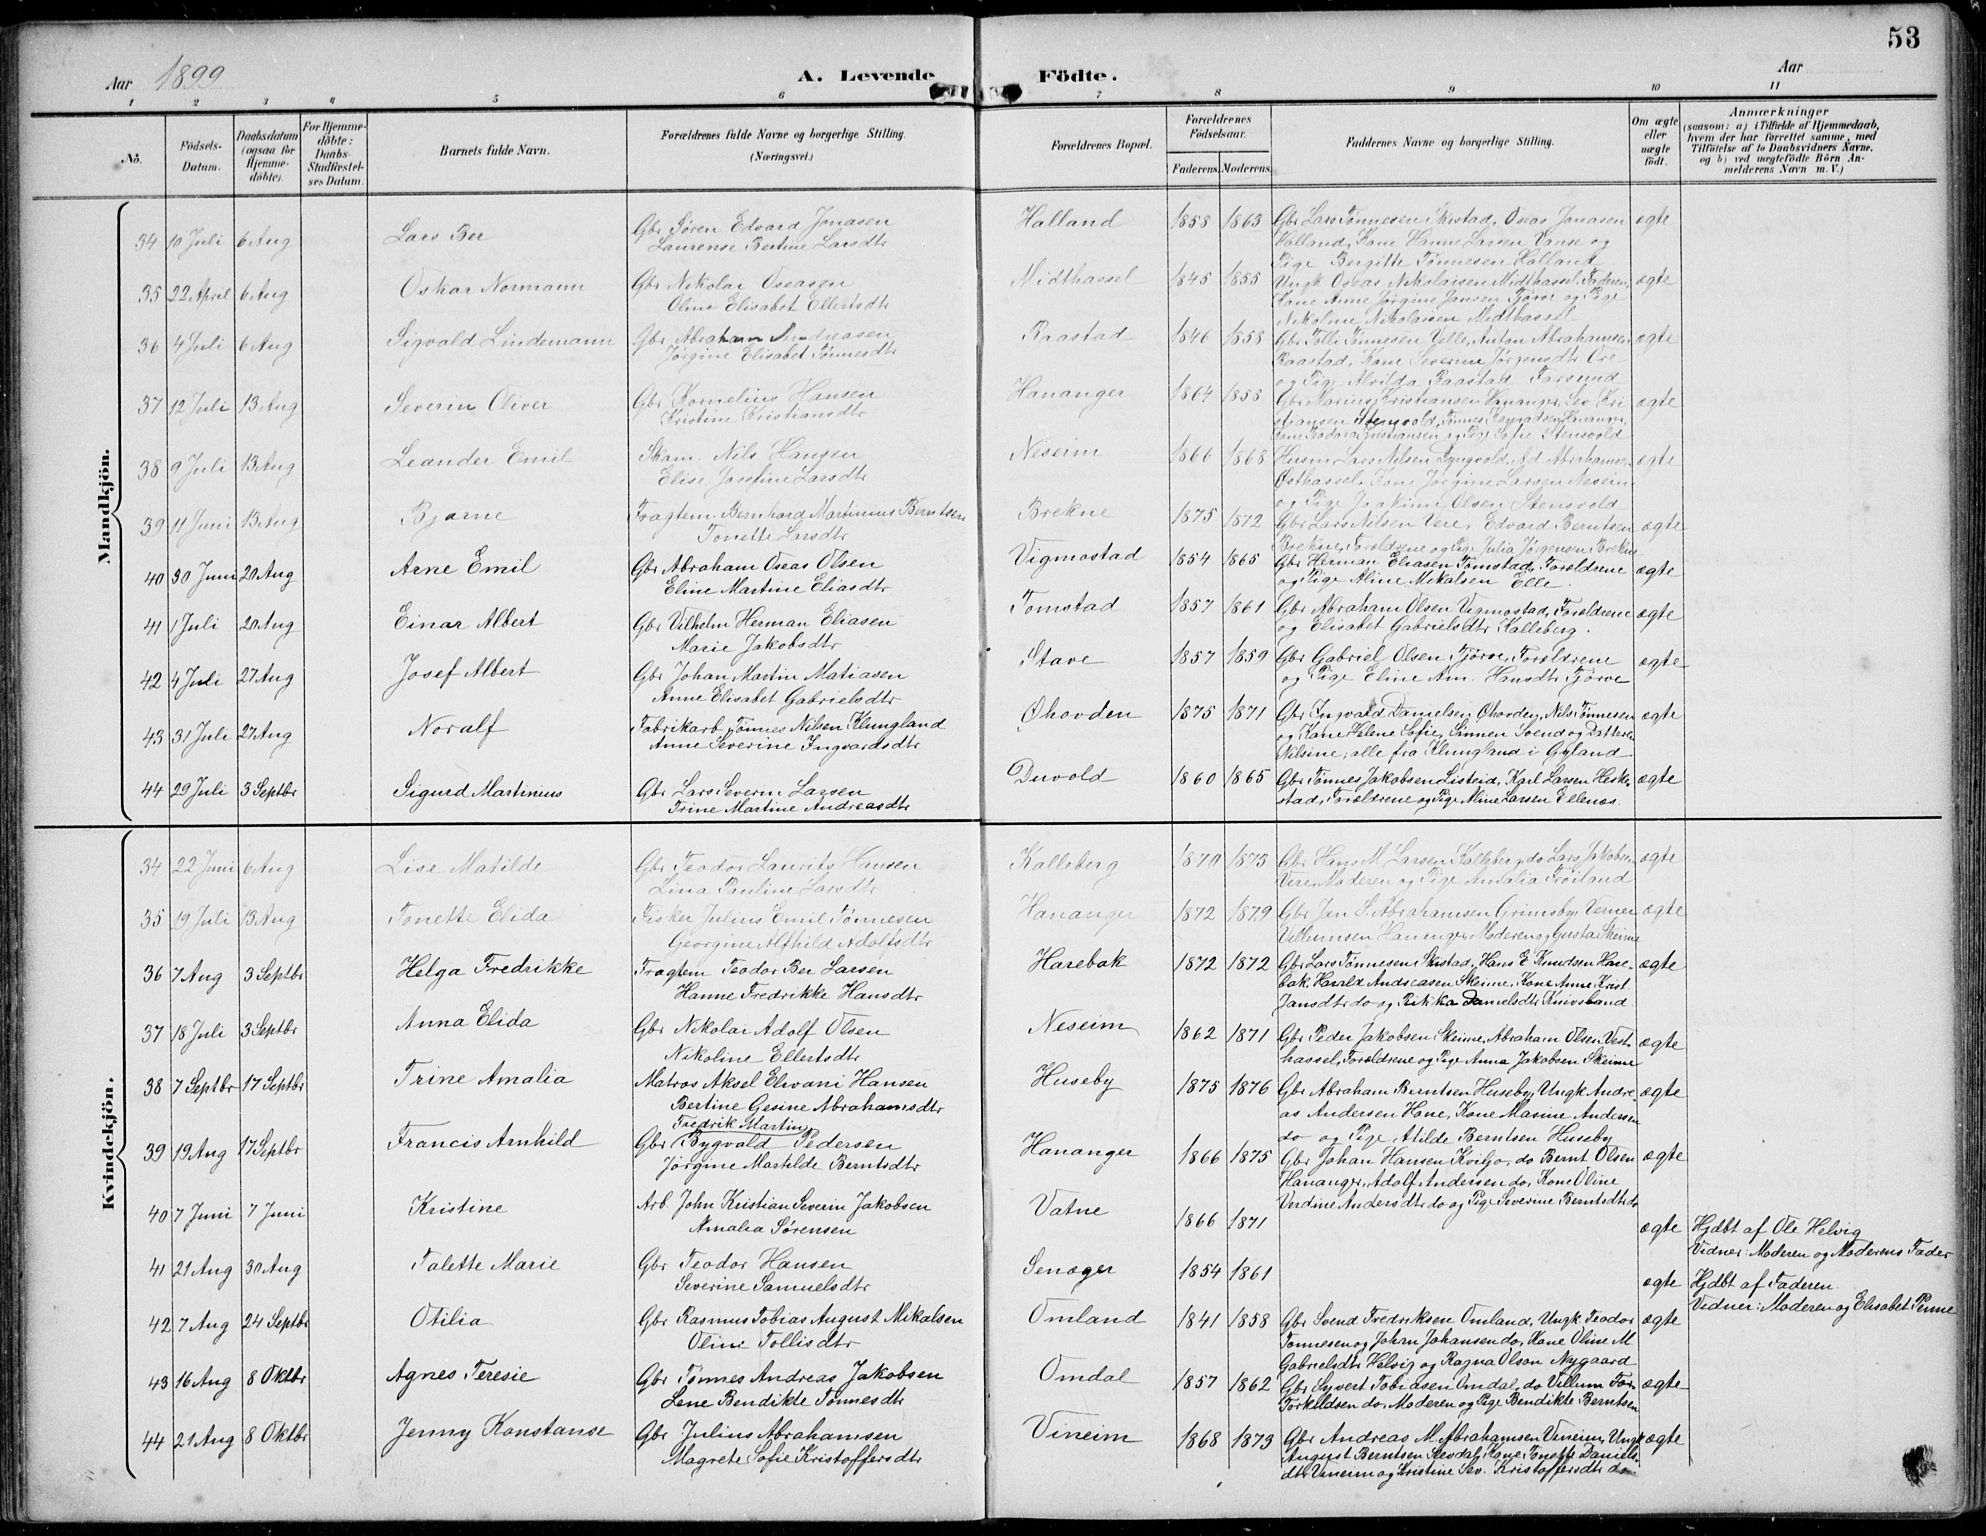 53
Aar 1899
A. Levende Födte.
Aar
1 2 3 4 5 6 7 8 9 10 11
No.
Födsels-Datum.
Daabsdatum (ogsaa for Hjemme-döbte).
For Hjemme-döbte: Daabs-Stadfæstel-ses Datum.
Barnets fulde Navn.
Forældrenes fulde Navne og borgerlige Stilling. (Næringsvei.)
Forældrenes Bopæl.
Forældrenes Födselsaar.
Faderens. Moderens.
Faddernes Navne og borgerlige Stilling.
Om ægte eller uægte födt.
Anmærkninger
(saasom: a) i Tilfælde af Hjemmedaab, hvem der har forrettet samme, med Tilföielse af to Daabsvidners Navne, og b) ved uægtefödte Börn An-melderens Navn m. V.)
Mandkjön.
34 10 Juli 6 Aug Lars Ber Gbr Søren Edvard Jonasen Halland 1858 1863 Gbr Lars Tønnesen Skistad, Oseas Jonasen ægte
Laurense Bertine Larsdtr Halland, Kone Hanne Larsen Vanse og
Pige Bergitte Tønnesen Halland
35 22 April 6 Aug Oskar Normann Gbr Nikolai Oseasen Midthassel 1845 1855 Ungk Oseas Nikolaisen Midthassel, Faderen, ægte
Oline Elisabet Ellertsdtr Kone Anne Jørgine Jansen Tjørve og Pige
Nikoline Nikolaisen Midthassel
36 4 Juli 6 Aug Sigvald Lindemann Gbr Abraham Andreasen Raastad 1846 1858 Gbr Tolli Tønnesen Velle, Anton Abrahamsen ægte
Jørgine Elisabet Tønnesdtr Raastad, Kone Severine Jørgensdtr Ore
og Pige Alvilda Raastad Farsund
37 12 Juli 13 Aug Severin Oliver Gbr Kornelius Hansen Hananger 1864 1858 Gbr Marius Kristiansen Hananger, Sev. Kri ægte
Kristine Kristiansdtr stiansen Stensvold, Tønnes Hananger,
Kone Teodora Kristiansen og Pige Sofie Stensvold
38 9 Juli 13 Aug Leander Emil Skom. Nils Hansen Neseim 1866 1868 Husm Lars Nilsen Lyngvold, Ad. Abrahamsen ægte
Elise Josefine Larsdtr Østhassel, Kone Jørgine Larsen Neseim
og Pige Joakime Olsen Stensvold
39 11 Juni 13 Aug Bjarne Fragtem. Bernhard Martinius Berntsen Brekne 1875 1872 Gbr Lars Nilsen Vere, Edvard Berntsen ægte
Tonette Larsdtr Brekne, Forældrene og Pige Julia Jørgensen Brekne
40 30 Juni 20 Aug Arne Emil Gbr Abraham Oseas Olsen Vigmostad 1854 1865 Gbr Herman Eliasen Tomstad, Forældrene ægte
Eline Martine Eliasdtr og Pige Aline Mikalsen Elle.
41 1 Juli 20 Aug Einar Albert Gbr Vilhelm Herman Eliasen Tomstad 1857 1861 Gbr Abraham Olsen Vigmostad, Forældrene ægte
Marie Jakobsdtr og Elisabet Gabrielsdtr Kalleberg.
42 4 Juli 27 Aug Josef Albert Gbr Johan Martin Matiasen Stave 1857 1859 Gbr Gabriel Olsen Tjørve, Forældrene ægte
Anne Elisabet Gabrielsdtr og Pige Eline Am. Hansdtr Tjørve
43 31 Juli 27 Aug Noralf Fabrikarb Tønnes Nilsen Klungland Øhovden 1875 1871 Gbr Ingvald Danielsen Øhovden, Nils Tønnesen ægte
Anne Severine Ingvardsdtr og Kone Helene Sofie, Sønnen Svend og Datteren
Nilsine, alle fra Klungland i Gyland
44 29 Juli 3 Septbr Sigurd Martinius Gbr Lars Severin Larsen Duvold 1860 1865 Gbr Tønnes Jakobsen Listeid, Karl Larsen Heske- ægte
Trine Martine Andreasdtr stad, Forældrene og Pige Aline Larsen Ellenes.
Kvindekjön.
34 22 Juni 6 Aug Lise Matilde Gbr Teodor Lauritz Hansen Kalleberg 1870 1873 Gbr Hans M. Larsen Kalleberg, do Lars Jakobsen ægte
Lina Pauline Larsdtr Vere, Moderen og Pige Amalia Frøiland
35 19 Juli 13 Aug Tonette Elida Fisker Julius Emil Tønnesen Hananger 1872 1879 Gbr Jan S. Abrahamsen Grimsby, Verner ægte
Georgine Alfhild Adolfsdtr Villumsen Hananger, Moderen og Gusta Skeime
36 7 Aug 3 Septbr Helga Fredrikke Fragtem Teodor Ber Larsen Harebak 1872 1872 Gbr Lars Tønnesen Skistad, Hans E Knudsen Hare- ægte
Hanne Fredrikke Hansdtr bak, Harald Andreasen Skeime, Kone Anne Krist.
Jansdtr do og Rikika Danielsdtr Knivsland
37 18 Juli 3 Septbr Anna Elida Gbr Nikolai Adolf Olsen Neseim 1862 1871 Gbr Peder Jakobsen Skeime, Abraham Olsen Vest- ægte
Nikoline Ellertsdtr hassel, Forældrene og Pige Anna Jakobsen Skeime
38 7 Septbr 17 Septbr Trine Amalia Matros Aksel Elivani Hansen Huseby 1875 1876 Gbr Abraham Berntsen Huseby, Ungk Andre ægte
Bertine Gesine Abrahamsdtr as Andersen Hone, Kone Masine Andersen
do og Pige Atilde Berntsen Huseby
Fredrik Martin
39 19 Aug 17 Septbr Francis Arnhild Gbr Bygvald Pedersen Hananger 1866 1875 Gbr Johan Hansen Kviljo, do Bernt Olsen ægte
Jørgine Martilde Berntsdtr Hananger, Adolf Andersen do, Kone Oline
Verdine Andersdtr do og Pige Severine Berntsdtr do
40 7 Juni 7 Juni Kristine Arb. John Kristian Severin Jakobsen Vatne 1866 1871 ægte Hjdbt af Ole Helvig
Amalia Sørensen Vidner: Moderen og Moderens Fader
41 21 Aug 30 Aug Talette Marie Gbr Teodor Hansen Senæger 1854 1861 ægte Hjdbt af Faderen.
Severine Samuelsdtr Vidner: Moderen og Elisabet Penne
42 7 Aug 24 Septbr Otilia Gbr Rasmus Tobias August Mikalsen Omland 1841 1858 Gbr Svend Fredriksen Omland, Ungk Teodor ægte
Oline Tollisdtr Tønnesen og Johan Johansen do, Kone Oline M
Gabrielsdtr Helvig og Ragna Olson Nygaard
43 16 Aug 8 Oktbr Agnes Teresie Gbr Tønnes Andreas Jakobsen Omdal 1857 1862 Gbr Syvert Tobiasen Omdal, do Villum Tor- ægte
Lene Bendikte Tønnesdtr Torkildsen do, Moderen og Pige Bendikte Berntsen
44 21 Aug 8 Oktbr Jenny Konstanse Gbr Julius Abrahamsen Vineim 1868 1873 Gbr Andreas M. Abrahamsen Vineim, Ungk ægte
Magrete Sofie Kristoffersdtr August Berntsen Sevdal, Kone Tonette Daniels-
dtr Vineim og Kristine Sev. Kristoffersdtr do